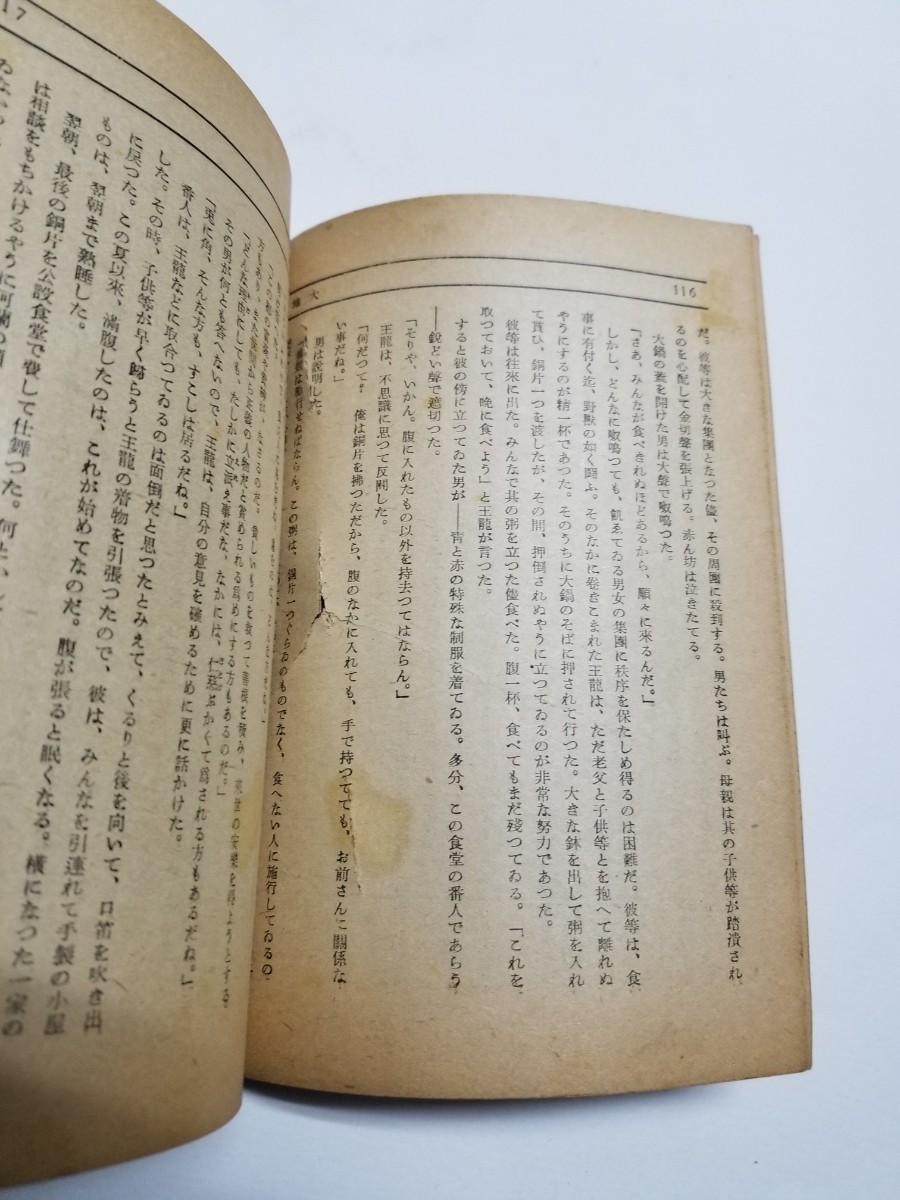 116
大地
だ。彼等は大きな集團となつた儘、その周圍に殺到する。男たちは叫ぶ。母親は其の子供等が踏潰され
るのを心配して金切聲を張上げる。赤ん坊は泣きたてる。
大鍋の蓋を開けた男は大聲で呶鳴つた。
「さあ、みんなが食べきれぬほどあるから、順々に來るんだ。」
しかし、どんなに呶鳴つても、飢ゑてゐる男女の集團に秩序を保たしめ得るのは困難だ。彼等は、食
事に有付く迄、野獸の如く鬪ふ。そのなかに卷きこまれた王龍は、ただ老父と子供等とを抱へて離れぬ
やうにするのが精一杯であつた。そのうちに大鍋のそばに押されて行つた。大きな鉢を出して粥を入れ
て貰ひ、銅片一つを渡したが、その間、押倒されぬやうに立つてゐるのが非常な努力であつた。
彼等は往來に出た。みんなで其の粥を立つた儘食べた。腹一杯、食べてもまだ殘つてゐる。「これを
取つておいて、晩に食べよう」と王龍が言つた。
すると彼の傍に立つてゐた男――靑と赤の特殊な制服を着てゐる。多分、この食堂の番人であらう
――銳どい聲で遮切つた。
「そりや、いかん。腹に入れたもの以外を持去つてはならん。」
王龍は、不思議に思つて反問した。
「何だつて？ 俺は銅片を拂つただから、腹のなかに入れても、手で持つてても、お前さんに關係な
い事だね。」
男は說明した。
勵行せねばならん。この粥は、銅片一つぐらゐのものでなく、食へない人に施行してゐるの
17
貧しいものを救つて善根を積み、來世の安樂を得ようとする
方もあり、また
人物だと賞められる爲めにする方もあるのだ。」
「どんな理由にしても、たしかに立派え事だな、なかには、仁慈ぶかくて爲される方もあるだね。」
その男が何とも答へないので、王龍は、自分の意見を確めるために更に話かけた。
「兎に角、そんな方も、すこしは居るだね。」
番人は、王龍などに取合つてゐるのは面倒だと思つたとみえて、くるりと後を向いて、口笛を吹き出
した。その時、子供等が早く歸らうと王龍の着物を引張つたので、彼は、みんなを引連れて手製の小屋
に戾つた。この夏以來、滿腹したのは、これが始めてなのだ。腹が張ると眠くなる。橫になつた一家の
ものは、翌朝まで熟睡した。
翌朝、最後の銅片を公設食堂で費して仕舞つた。何
は相談をもちかけるやうに阿蘭の